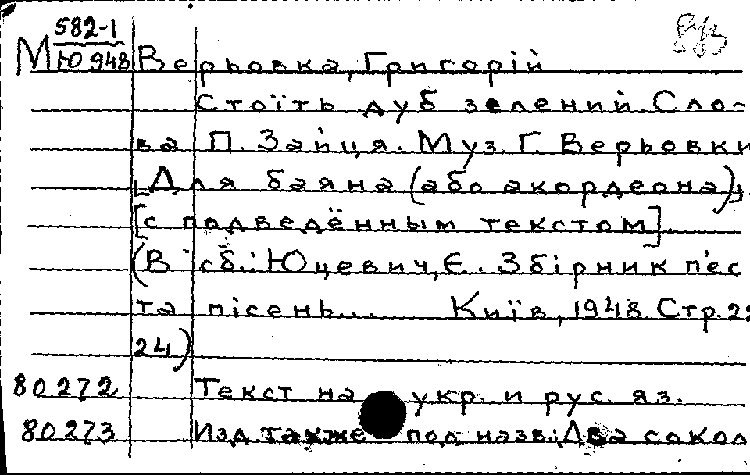 582-1
М Ю 948 Верьовка, Григорій
Стоїть дуб зелений. Сло-
ва П. Зайця. Муз. Г. Верьовки
[Для баяна (або акордеона)],
[с подведённым текстом]
(В сб.: Юцевич, Є. Збірник п'єс
та пісень... Київ, 1948. Стр. 22
24)
80272 Текст на укр. и рус. яз.
80273 Изд. также под назв.: Два сокол